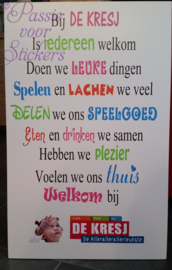 Passie
voor
Stickers
Bij DE KRESJ
Is iedereen welkom
Doen we LEUKE dingen
Spelen en LACHEN we veel
DELEN we ons SPEELGOED
Eten en drinken we samen
Hebben we plezier
Voelen we ons thuis
Welkom bij
DE KRESJ
De Allerallerallerleukste